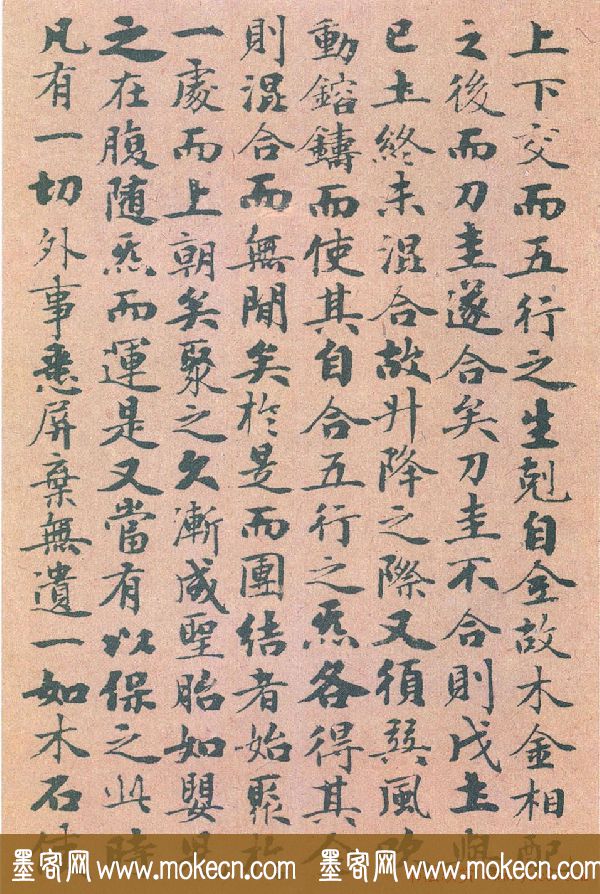 上下交而五行之生剋自全故木金相配
之後而刀圭遂合矣刀圭不合則戊土
已土終未混合故升降之際又須巽風吹
動鎔鑄而使其自合五行之炁各得其合
則混合而無閒矣於是而團結者始聚於
一處而上朝矣聚之久漸成聖胎如嬰兒
之在腹随炁而運是又當有以保之此時
凡有一切外事悉屏棄無遺一如木石
墨客网 www.mokecn.com 墨客网 www.mokecn.com